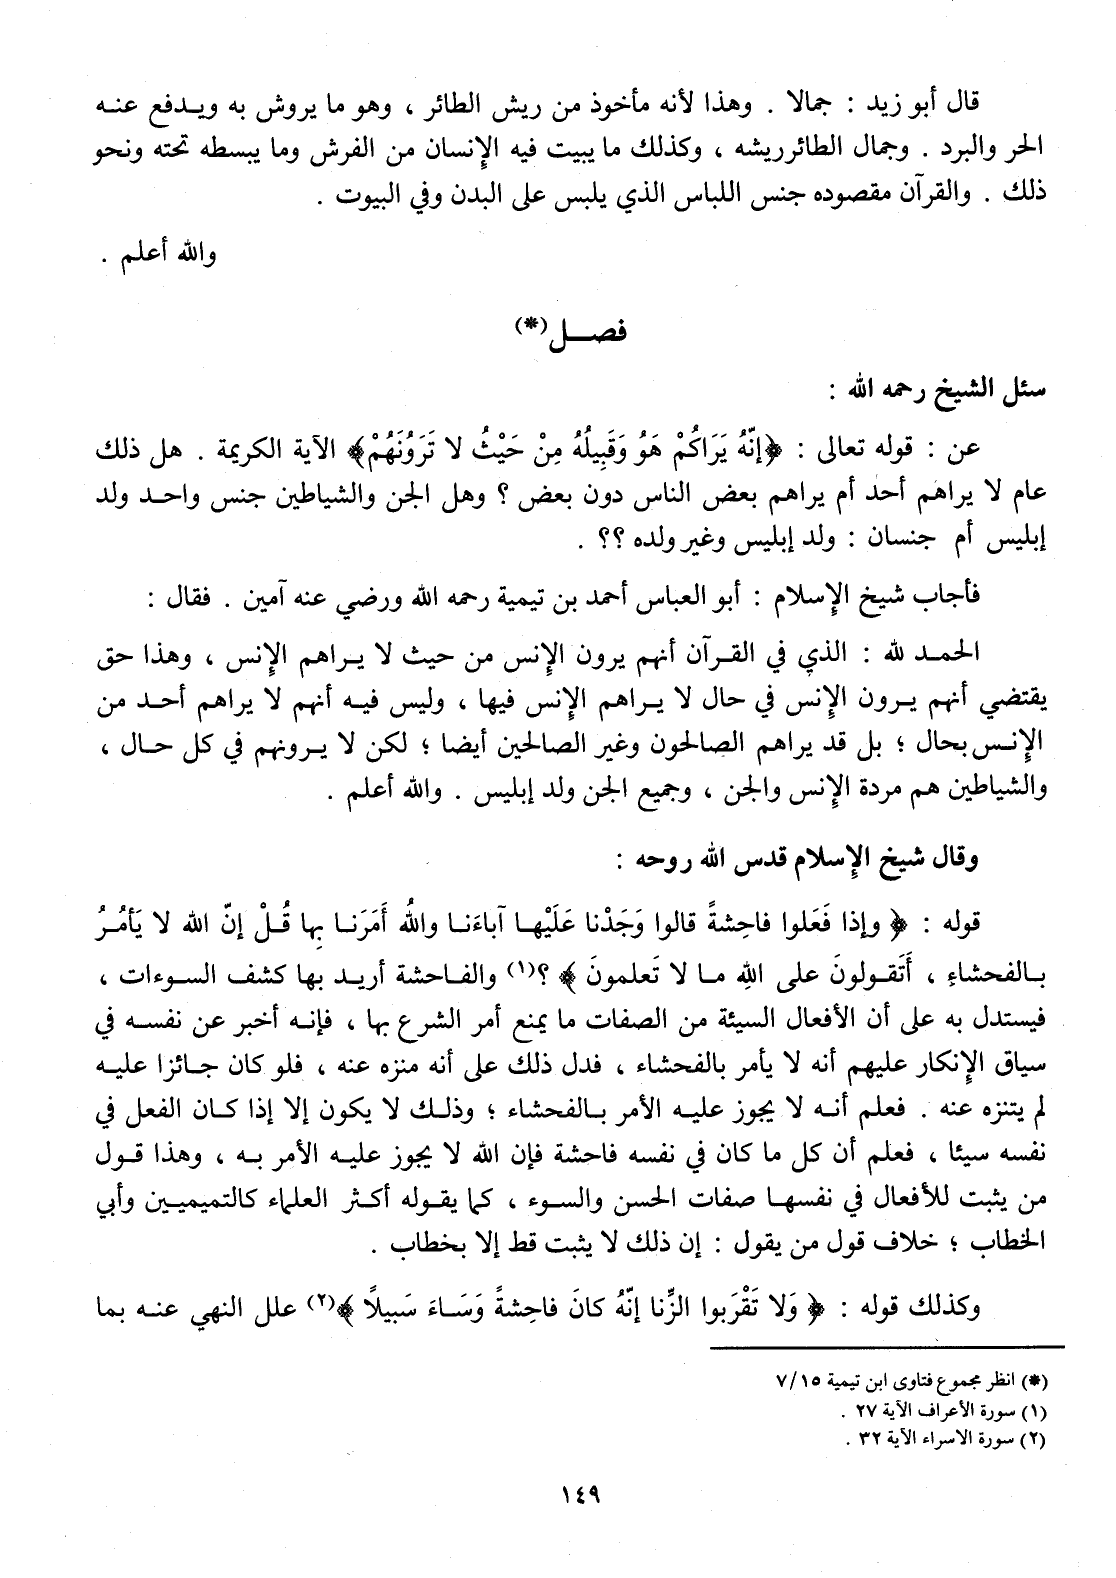 قال أبو زيد : جمالا . وهذا لأنه مأخوذ من ريش الطائر ، وهو ما يروش به ويدفع عنه
الحر والبرد . وجمال الطائر ريشه ، وكذلك ما يبيت فيه الإنسان من الفرش وما يبسطه تحته ونحو
ذلك . والقرآن مقصوده جنس اللباس الذي يلبس على البدن وفي البيوت .
والله أعلم .
فصل(*)
سئل الشيخ رحمه الله :
عن : قوله تعالى : ﴿إنَّهُ يَرَاكُمْ هَوُ وَقَبِيلُهُ مِنْ حَيْثُ لا تَرَوْنَهُمْ﴾ الآية الكريمة . هل ذلك
عام لا يراهم أحد أم يراهم بعض الناس دون بعض ؟ وهل الجن والشياطين جنس واحد ولد
إبليس أم جنسان : ولد إبليس وغير ولده ؟؟ .
فأجاب شيخ الإسلام : أبو العباس أحمد بن تيمية رحمه الله ورضي عنه آمين . فقال :
الحمد لله : الذي في القرآن أنهم يرون الإنس من حيث لا يراهم الإنس ، وهذا حق
يقتضي أنهم يرون الإنس في حال لا يراهم الإنس فيها ، وليس فيه أنهم لا يراهم أحد من
الإنس بحال ؛ بل قد يراهم الصالحون وغير الصالحين أيضا ؛ لكن لا يرونهم في كل حال ،
والشياطين هم مردة الإنس والجن ، وجميع الجن ولد إبليس . والله أعلم .
وقال شيخ الإسلام قدس الله روحه :
قوله : ﴿ وإذا فَعَلوا فاحِشةً قالوا وَجَدْنا عَلَيْها آباءَنا واللهُ أَمَرَنا بها قُلْ إنّ الله لا يَأمُرُ
بالفحشاءِ ، أَتَقولونَ على اللهِ ما لا تَعلمونَ ﴾ ؟(١) والفاحشة أريد بها كشف السوءات ،
فيستدل به على أن الأفعال السيئة من الصفات ما يمنع أمر الشرع بها ، فإنه أخبر عن نفسه في
سياق الإنكار عليهم أنه لا يأمر بالفحشاء ، فدل ذلك على أنه منزه عنه ، فلو كان جائزا عليه
لم يتنزه عنه . فعلم أنه لا يجوز عليه الأمر بالفحشاء ؛ وذلك لا يكون إلا إذا كان الفعل في
نفسه سيئا ، فعلم أن كل ما كان في نفسه فاحشة فإن الله لا يجوز عليه الأمر به ، وهذا قول
من يثبت للأفعال في نفسها صفات الحسن والسوء ، كما يقوله أكثر العلماء كالتميميين وأبي
الخطاب ؛ خلاف قول من يقول : إن ذلك لا يثبت قط إلا بخطاب .
وكذلك قوله : ﴿ وَلا تَقْرَبوا الزِّنا إنّهُ كانَ فاحِشةً وَسَاءَ سَبيلاً ﴾(٢) علل النهي عنه بما
(*) انظر مجموع فتاوى ابن تيمية ٧/١٥
(١) سورة الأعراف الآية ٢٧ .
(٢) سورة الاسراء الآية ٣٢ .
١٤٩